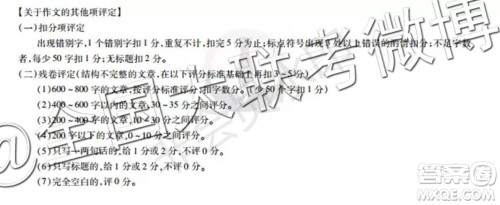 【关于作文的其他项评定】
(一)扣分项评定
出现错别字,1个错别字扣1分,重复不计,扣完5分为止;标点符号出现 处以上错误的酌情扣分;不足字数
者,每少50字扣1分;无标题扣2分。
(二)残卷评定(结构不完整的文章,在以下评分标准基础上再扣3~5分)
(1)600~800字的文章,按评分标准评分,扣字数分。(少50字扣1分)
(2)400~600字以内的文章,30~35分之间评分。
(3)200 字的文章, 分之间评分。
(4)200字以下的文章,0~10分之间评分。
(5)只写一两句话的,给1分或2分,不评0分。
(6)只写标题的,给1分或2分,不评0分。
(7)完全空白的,评0分。
@全国大联考微博
答案圈